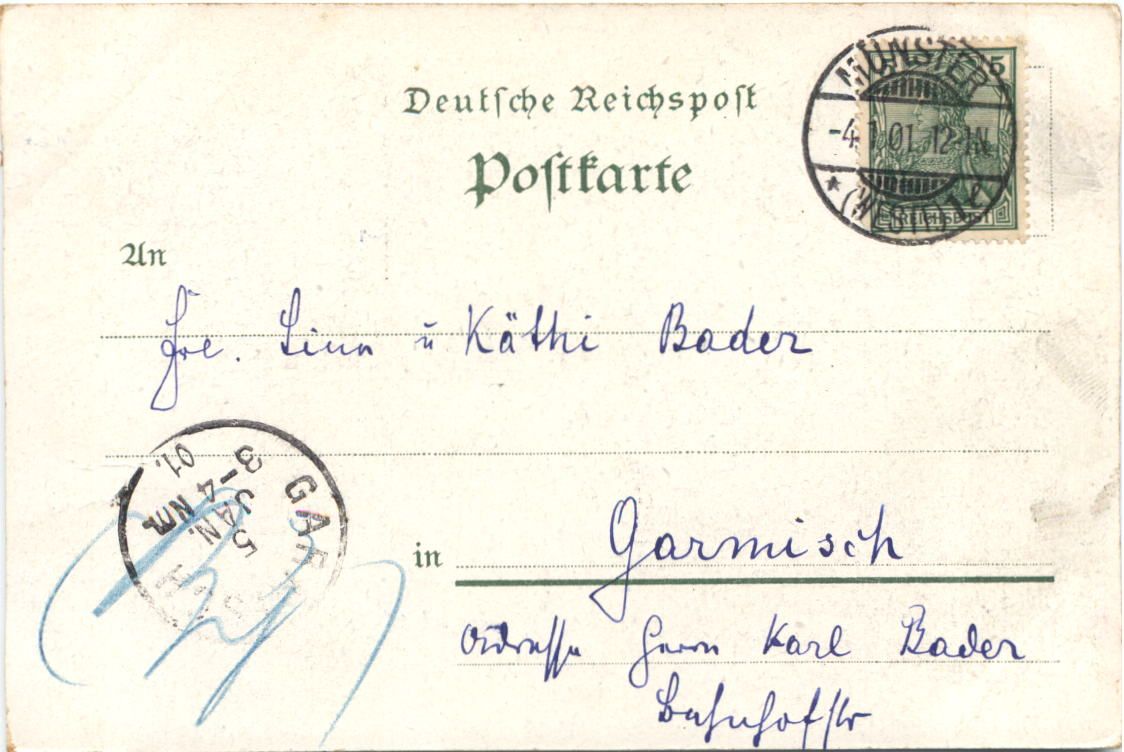 Deutsche Reichspost
Postkarte
MÜNSTER
-4.1.01.12-1N.
* (WESTF.) 1
5
REICHSPOST
An
Frl. Lina u Käthi Bader
GARMISCH
5 JAN. 3-4 Nm. 01.
in Garmisch
Adresse Herrn Karl Bader
Bahnhofstr